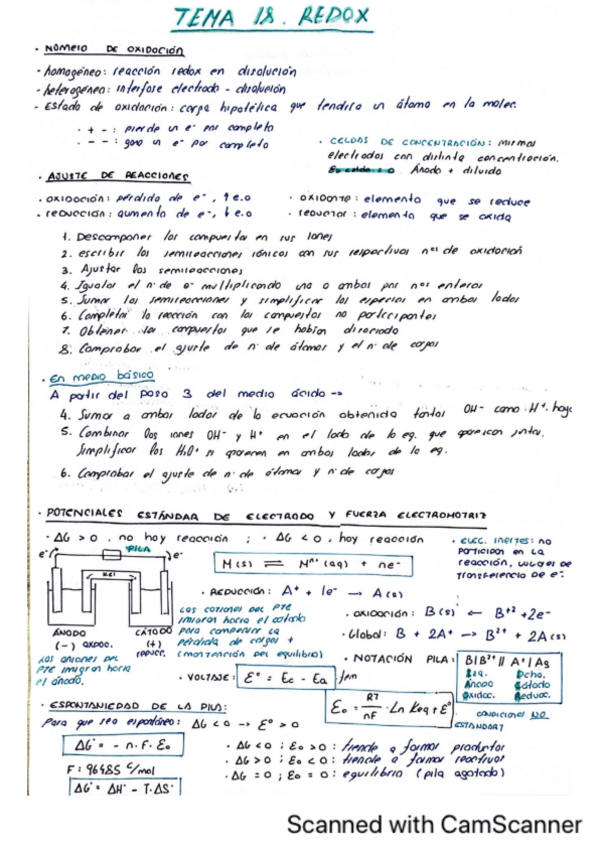 TEMA 18. REDOX
· NÚMERO DE OXIDACIÓN
- homogéneo: reacción redox en disolución
- heterogénea: interfase electrodo - disolución
- Estado de oxidación: carga hipotética que tendría un átomo en la molec.
· + - : pierde un e- por completo
· - - : gana un e- por completo
· CELDAS DE CONCENTRACIÓN: mismos
electrodos con distinta concentración.
Ánodo + diluido
· AJUSTE DE REACCIONES
· OXIDACIÓN: pérdida de e-, ↑ e.o
· REDUCCIÓN: aumento de e-, ↓ e.o
· OXIDANTE: elemento que se reduce
· reductor: elemento que se oxida
1. Descomponer los compuestos en sus iones
2. escribir las semireacciones iónicas con sus respectivos nºs de oxidación
3. Ajustar las semireacciones
4. Igualar el nº de e- multiplicando una o ambas por nºs enteros
5. Sumar las semireacciones y simplificar las especies en ambos lados
6. Completar la reacción con los compuestos no participantes
7. Obtener los compuestos que se habían disociado
8. Comprobar el ajuste de nº de átomos y el nº de cargas
· En medio básico
A partir del paso 3 del medio ácido ->
4. Sumar a ambos lados de la ecuación obtenida tantos OH- como H+ haya
5. Combinar los iones OH- y H+ en el lado de la eq. que aparecen juntos.
Simplificar los H2O si aparecen en ambos lados de la eq.
6. Comprobar el ajuste de nº de átomos y nº de cargas
· POTENCIALES ESTÁNDAR DE ELECTRODO Y FUERZA ELECTROMOTRIZ
· ΔG > 0 . no hay reacción ; · ΔG < 0 . hay reacción
· elec. inertes: no
participan en la
reacción, lugares de
transferencia de e-.
PILA
e- e-
KCl
M (s) ⇌ Mn+ (aq) + ne-
· REDUCCIÓN: A+ + 1e- → A (s)
· OXIDACIÓN: B (s) ← B+2 + 2e-
· Global: B + 2A+ → B2+ + 2A (s)
ÁNODO
(-) oxidac.
CÁTODO
(+)
reduc.
Los aniones del
PTE migran hacia
el ánodo.
Los cationes del PTE
migran hacia el cátodo
para compensar la
pérdida de cargas +
(mantención del equilibrio)
· NOTACIÓN PILA: B|B2+ || A+|Ag
Izq. Dcha.
Ánodo Cátodo
Oxidac. Reduc.
· VOLTAJE: E° = Ec - Ea fem
E0 = RT/nF · Ln Keq + E°
condiciones NO
estándar
· ESPONTANIEDAD DE LA PILA:
Para que sea espontáneo: ΔG < 0 → E° > 0
ΔG° = - n. F. E0
F: 96485 C/mol
ΔG° = ΔH° - T.ΔS°
· ΔG < 0 ; E0 > 0: tiende a formar productos
· ΔG > 0 ; E0 < 0: tiende a formar reactivos
· ΔG = 0 ; E0 = 0: equilibrio (pila agotada)
Scanned with CamScanner